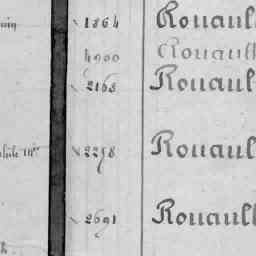 1864 Rouaul
4900 Rouaul
2168 Rouaul
2298 Rouaul
2691 Rouaul